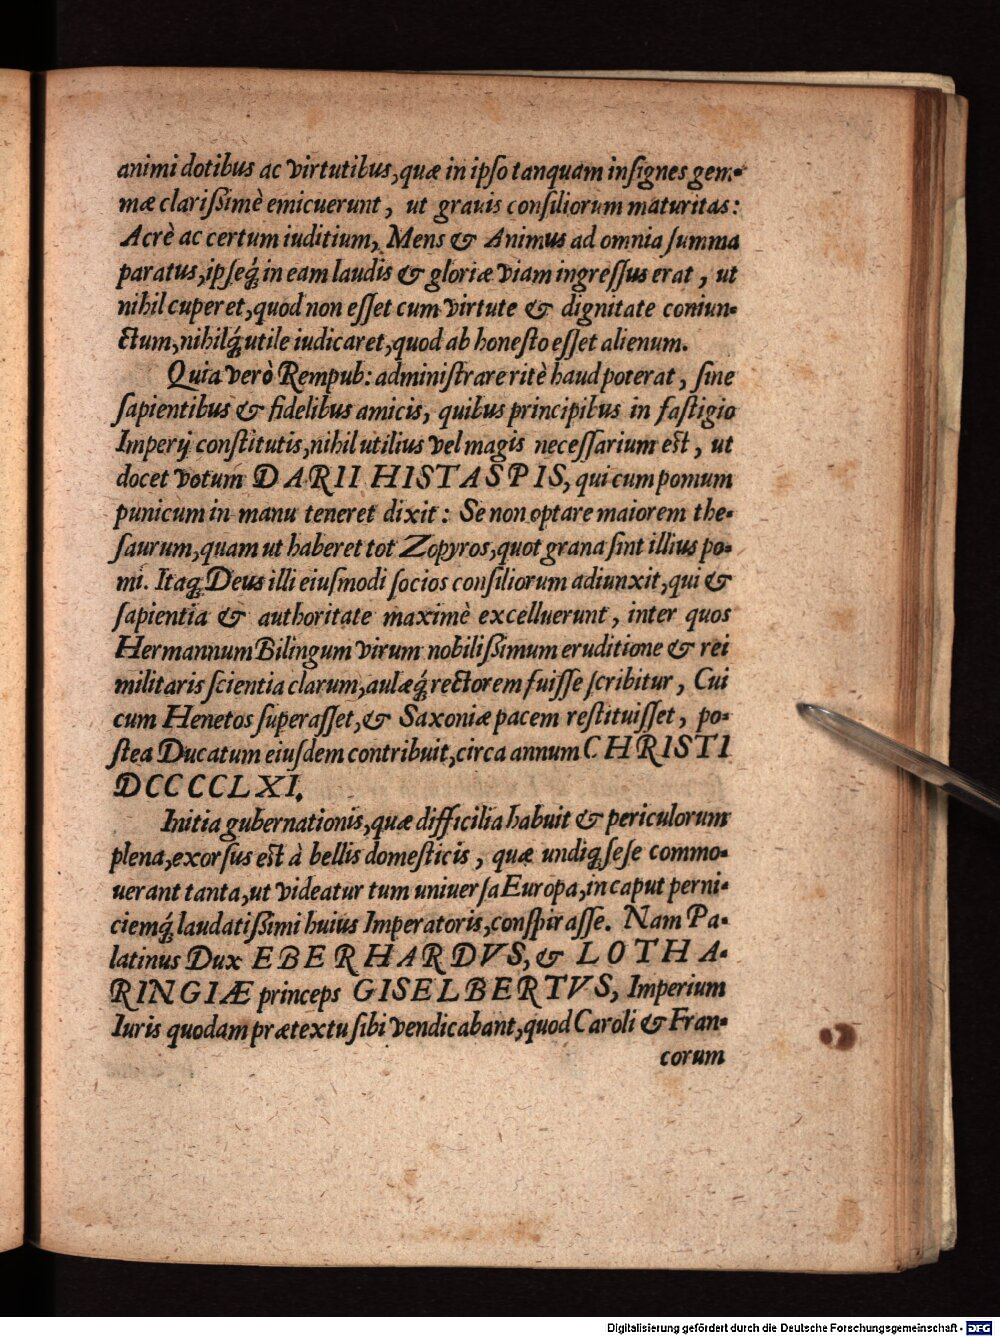 animi dotibus ac virtutibus, quæ in ipſo tanquam inſignes gem-
mæ clariſsimè emicuerunt, ut grauis conſiliorum maturitas:
Acrè ac certum iuditium, Mens & Animus ad omnia ſumma
paratus, ipſeq́; in eam laudis & gloriæ viam ingreſſus erat, ut
nihil cuperet, quod non eſſet cum virtute & dignitate coniun-
ctum, nihilq́; utile iudicaret, quod ab honeſto eſſet alienum.
Quia verò Rempub: adminiſtrare ritè haud poterat, ſine
ſapientibus & fidelibus amicis, quibus principibus in faſtigio
Imperij conſtitutis, nihil utilius vel magis neceſſarium eſt, ut
docet votum DARII HISTASPIS, qui cum pomum
punicum in manu teneret dixit: Se non optare maiorem the-
ſaurum, quam ut haberet tot Zopyros, quot grana ſint illius po-
mi. Itaq; Deus illi eiuſmodi ſocios conſiliorum adiunxit, qui &
ſapientia & authoritate maximè excelluerunt, inter quos
Hermannum Bilingum virum nobiliſsimum eruditione & rei
militaris ſcientia clarum, aulæq́; rectorem fuiſſe ſcribitur, Cui
cum Henetos ſuperaſſet, & Saxoniæ pacem reſtituiſſet, po-
ſtea Ducatum eiuſdem contribuit, circa annum CHRISTI
DCCCCLXI.
Initia gubernationis, quæ difficilia habuit & periculorum
plena, exorſus eſt à bellis domeſticis, quæ undiq; ſeſe commo-
uerant tanta, ut videatur tum uniuerſa Europa, in caput perni-
ciemq́; laudatiſsimi huius Imperatoris, conſpiraſſe. Nam Pa-
latinus Dux EBERHARDVS, & LOTHA-
RINGIÆ princeps GISELBERTVS, Imperium
Iuris quodam prætextu ſibi vendicabant, quod Caroli & Fran-
corum
Digitalisierung gefördert durch die Deutsche Forschungsgemeinschaft - DFG